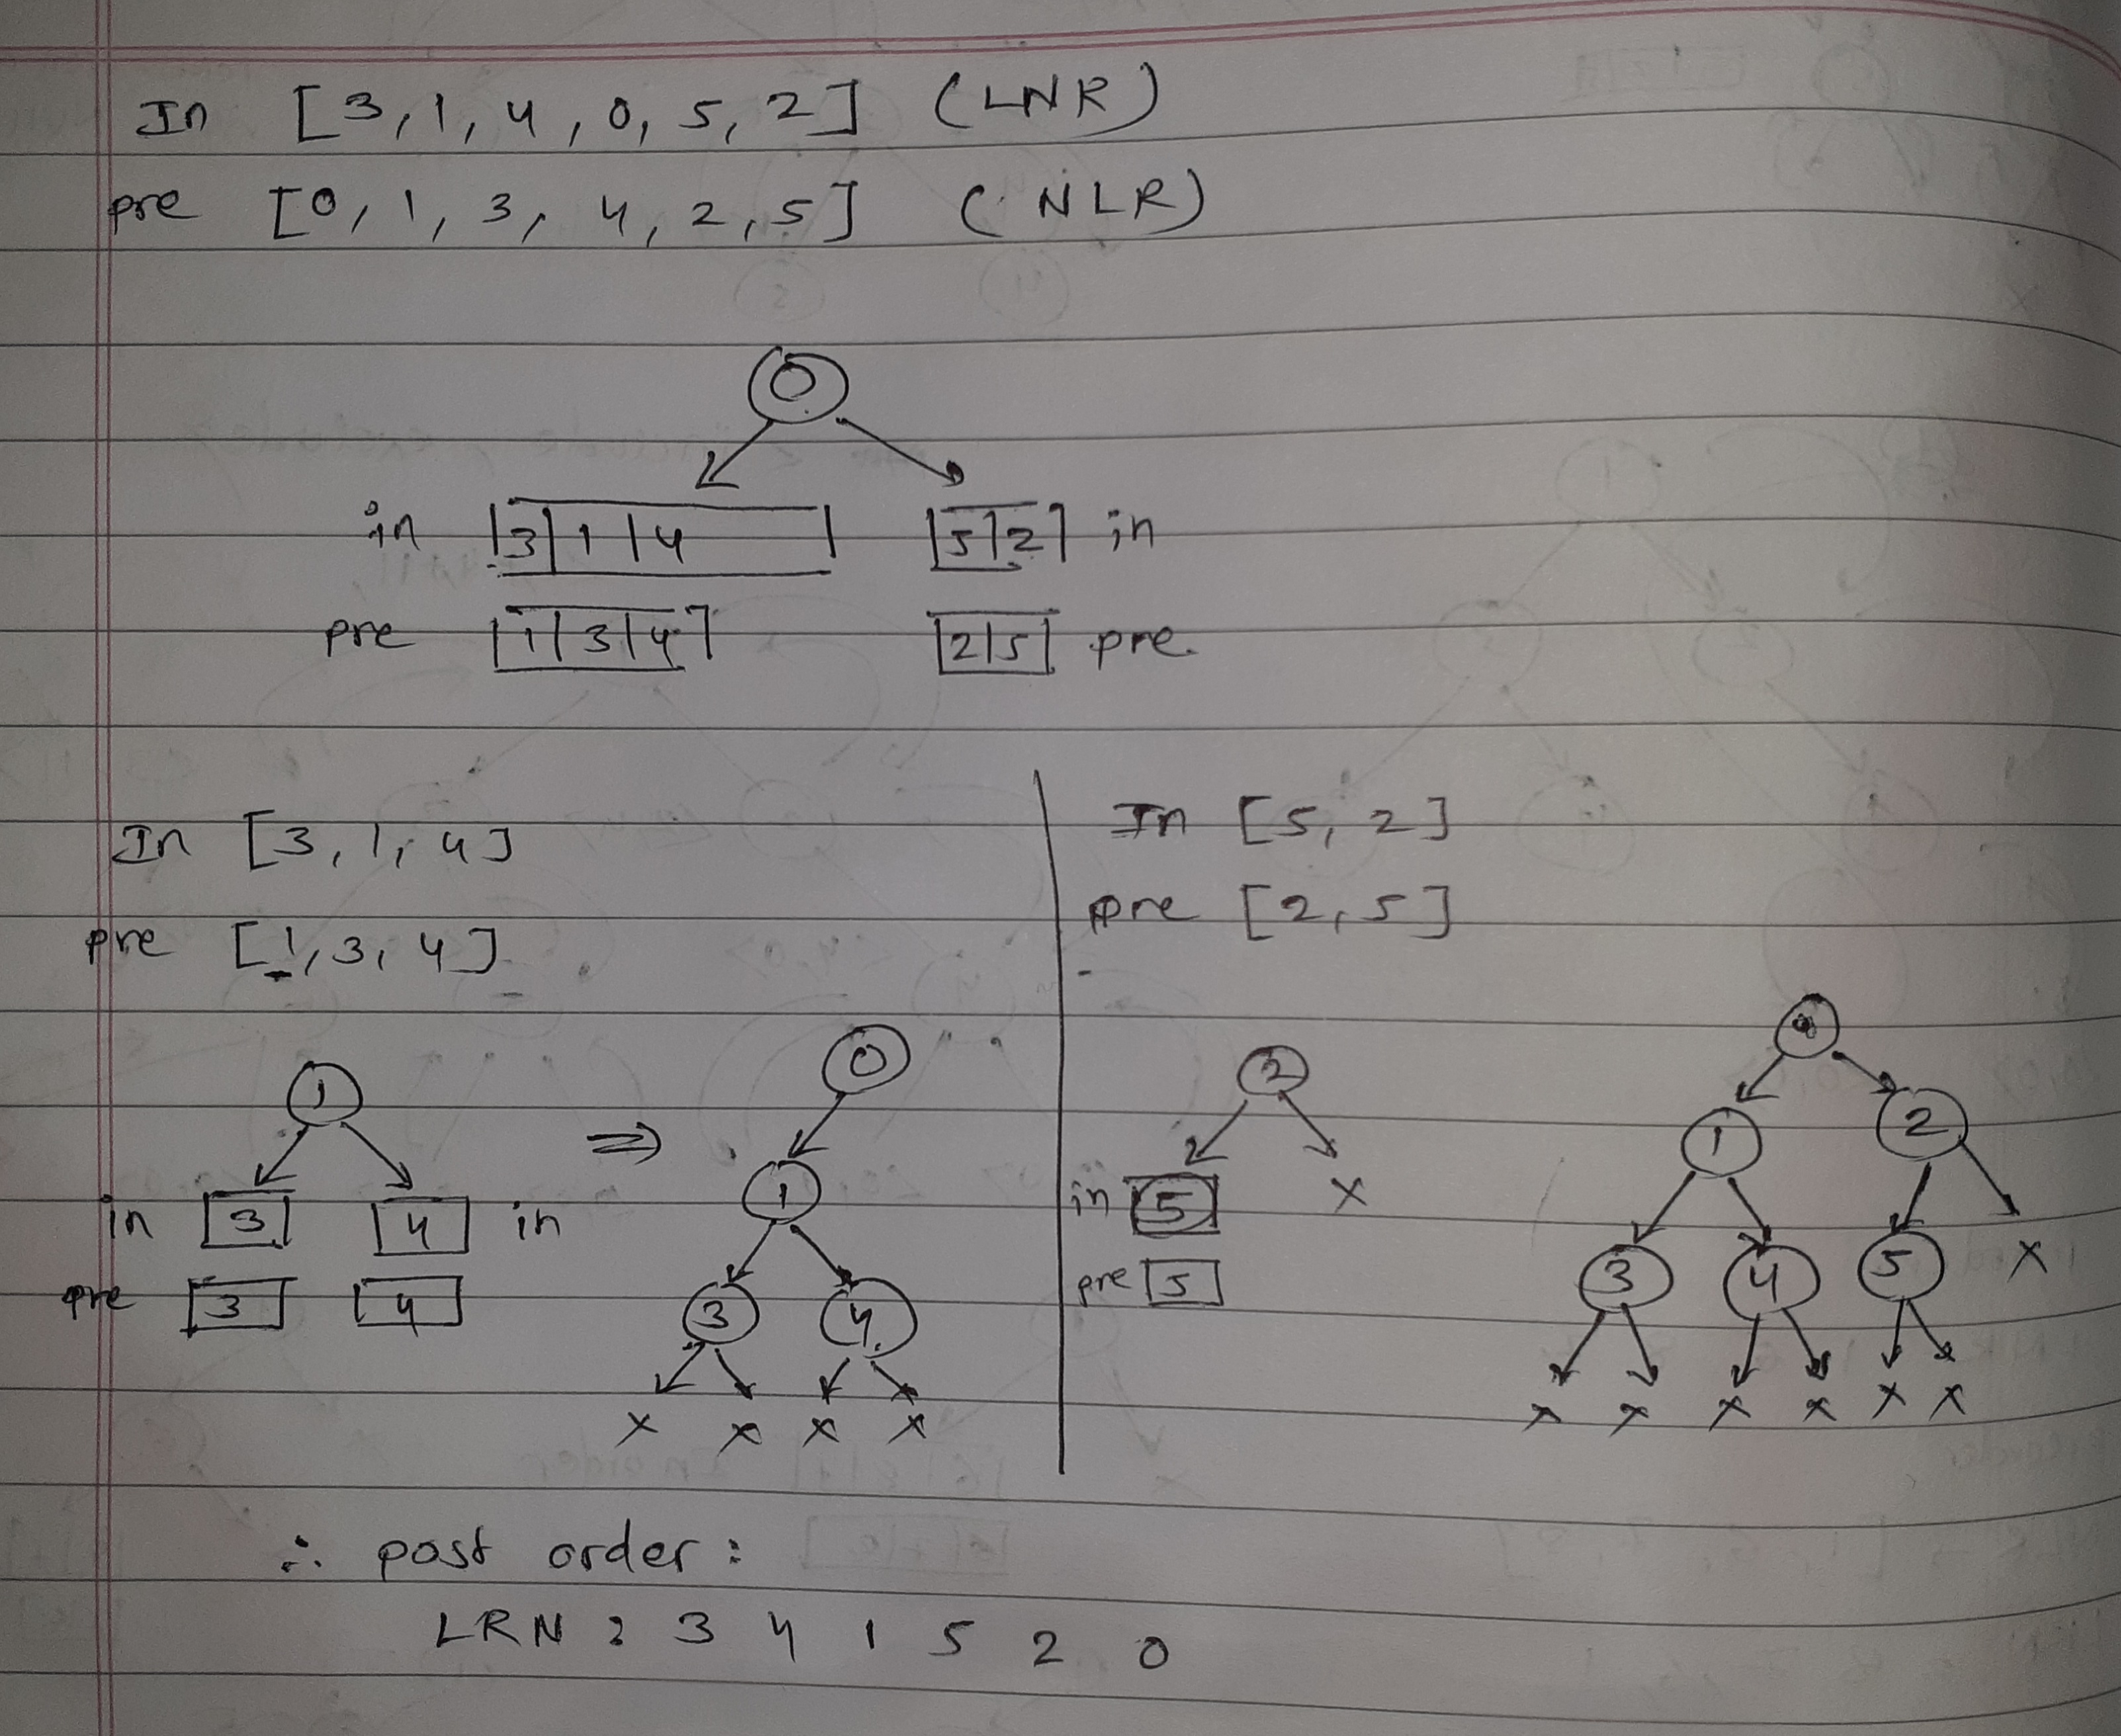 In [3, 1, 4, 0, 5, 2] (LNR)
pre [0, 1, 3, 4, 2, 5] (NLR)
0
in 3 1 4 5 2 in
pre 1 3 4 2 5 pre.
In [3, 1, 4]
pre [1, 3, 4]
1 ⇒ 0
in 3 4 in 1
pre 3 4 3 4
x x x x
In [5, 2]
pre [2, 5]
2
in 5 x
pre 5
1 2
3 4 5 x
x x x x x x
∴ post order :
LRN : 3 4 1 5 2 0